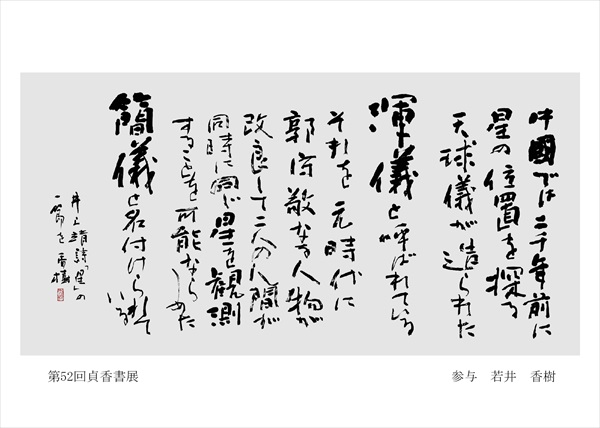 中國では二千年前に
星の位置を探る
天球儀が造られた
渾儀と呼ばれている
それを元時代に
郭守敬なる人物が
改良して二人の人間が
同時に同じ星を観測
することを可能ならしめた
簡儀と名付けられて
いる
井上靖詩「星」の
一節を 香樹
第52回貞香書展
参与 若井 香樹